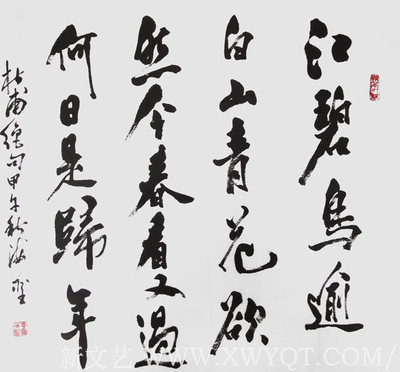 江碧鳥逾
白山青花欲
然今春看又過
何日是歸年
杜甫絕句甲午秋海
新文艺 WWW.XWYQT.COM